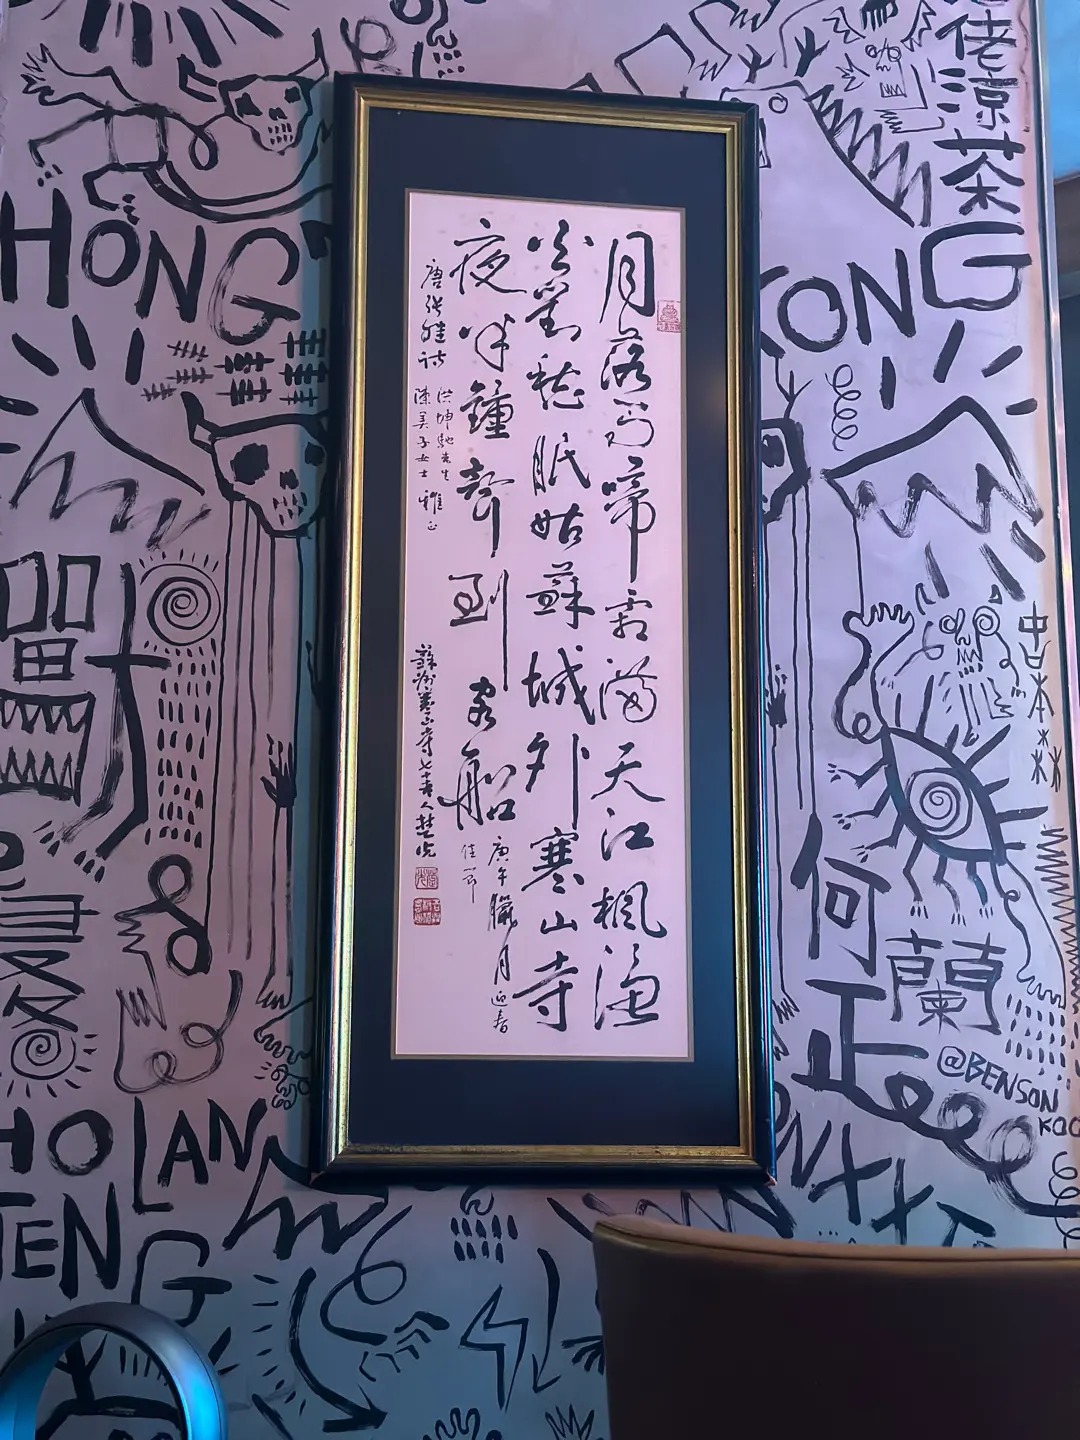 月落烏啼霜滿天江楓漁
火對愁眠姑蘇城外寒山寺
夜半鐘聲到客船
庚午臘月迎春
佳節
唐張繼詩
洪坤馳先生
陳美子女士 雅正
蘇州寒山寺七十老人楚光
佬涼茶
HONG
KONG
何蘭
正
@BENSON
KOO
HOLAN
TENG